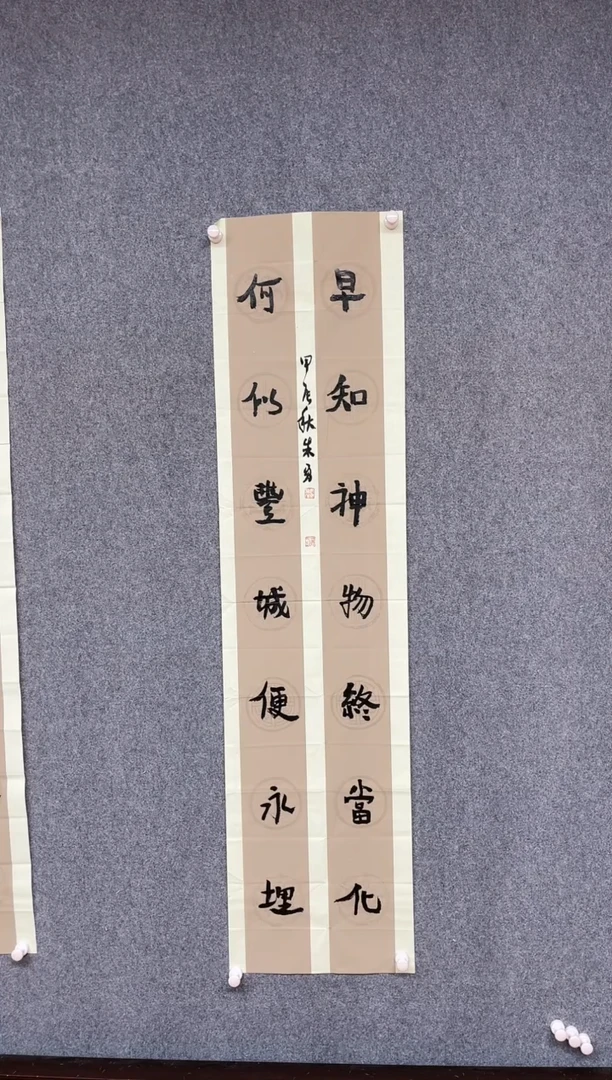 早知神物終當化
何似豐城便永埋
甲辰秋朱